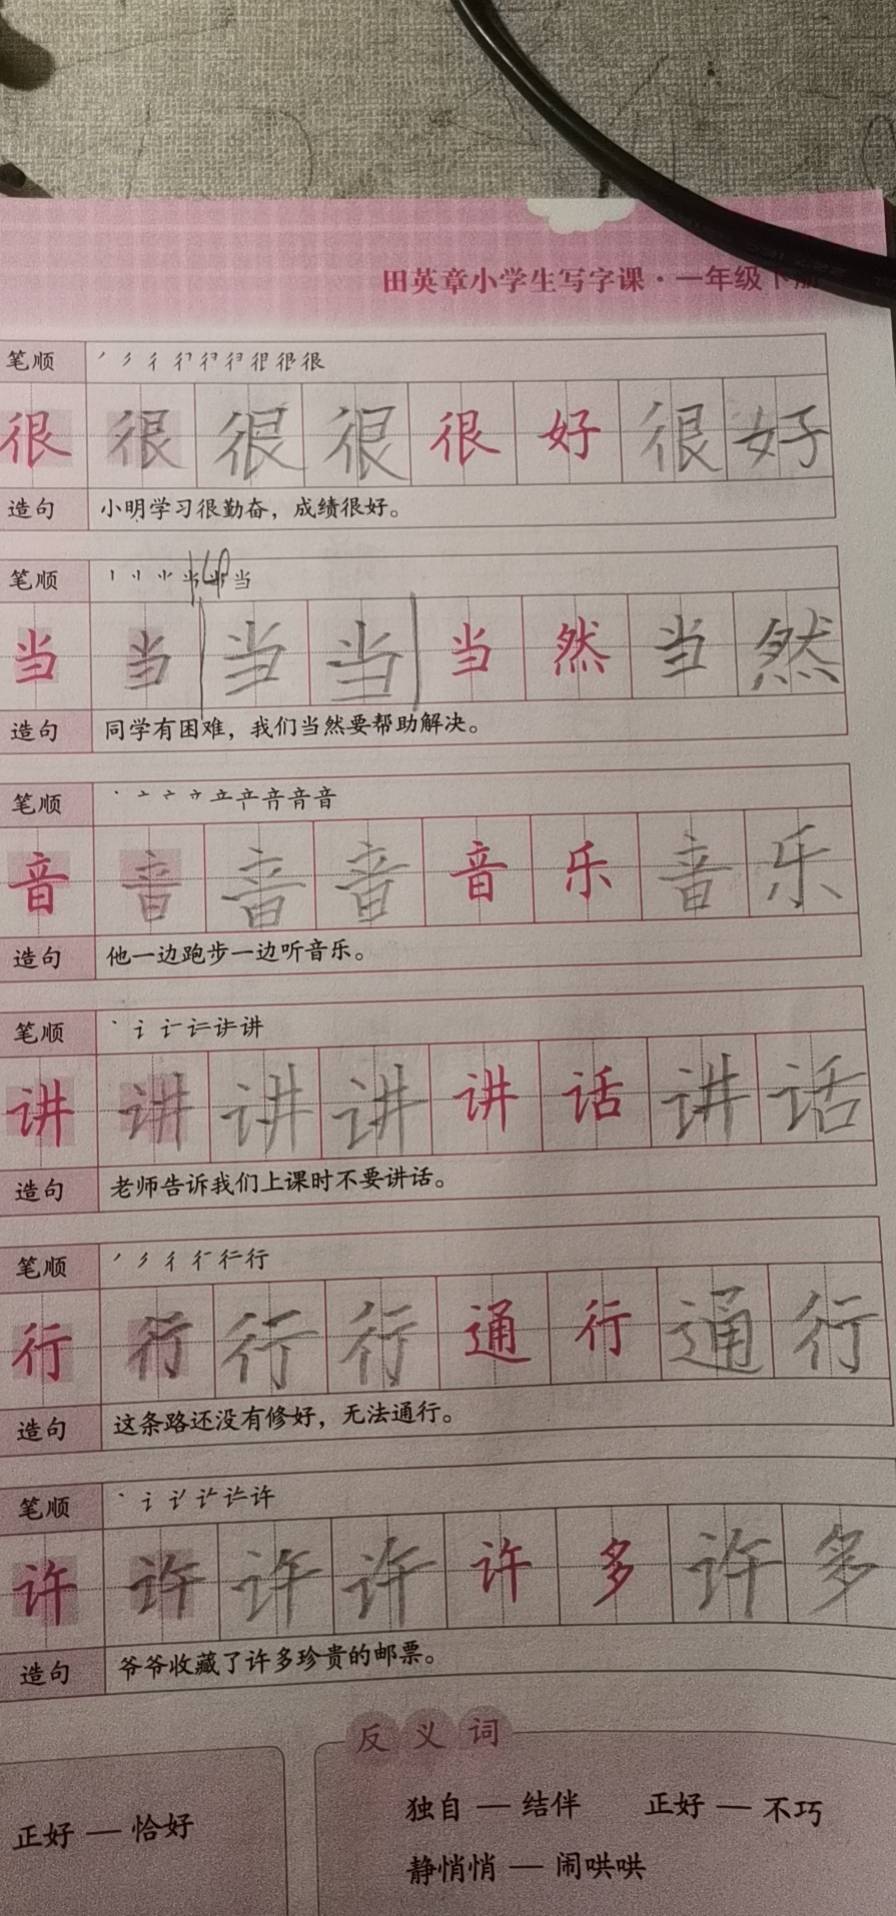 田英章小学生写字课·一年级下册
笔顺 ノ 彳 很
很 很 很 很 很 好 很 好
造句 小明学习很勤奋，成绩很好。
笔顺 当
当 当 当 当 当 然 当 然
造句 同学有困难，我们当然要帮助解决。
笔顺 音
音 音 音 音 音 乐 音 乐
造句 他一边跑步一边听音乐。
笔顺 讲
讲 讲 讲 讲 讲 话 讲 话
造句 老师告诉我们上课时不要讲话。
笔顺 ノ 彳 行
行 行 行 行 通 行 通 行
造句 这条路还没有修好，无法通行。
笔顺 许
许 许 许 许 许 多 许 多
造句 爷爷收藏了许多珍贵的邮票。
反义词
正好 — 恰好
独自 — 结伴 正好 — 不巧
静悄悄 — 闹哄哄